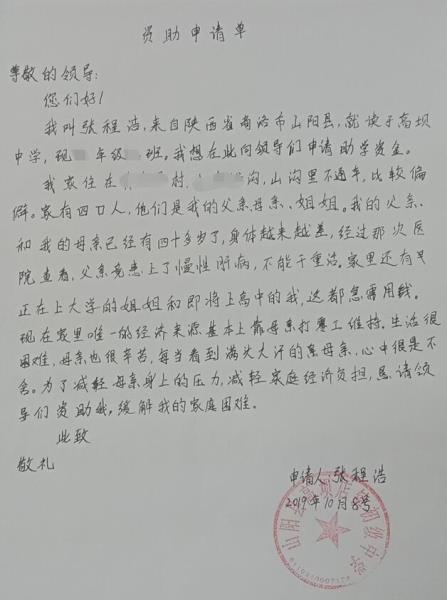 资助申请单
尊敬的领导:
您们好!
我叫张程浩,来自陕西省商洛市山阳县,就读于高坝
中学,现 年级 班。我想在此向领导们申请助学资金。
我家住在 村, 沟,山沟里不通车,比较偏
僻。家有四口人,他们是我的父亲母亲、姐姐。我的父亲、
和我的母亲已经有四十多岁了,身体越来越差,经过那次医
院查看,父亲竟患上了慢性肝病,不能干重活。家里还有
正在上大学的姐姐和即将上高中的我,这都急需用钱。
现在家里唯一的经济来源基本上靠母亲打零工维持。生活很
困难,母亲也很辛苦,每当看到满头大汗的母亲,心中很是不
舍。为了减轻母亲身上的压力,减轻家庭经济负担,恳请领
导们资助我,缓解我的家庭困难。
此致
敬礼
申请人 张程浩
2019年10月8号
山阳县 初级中学